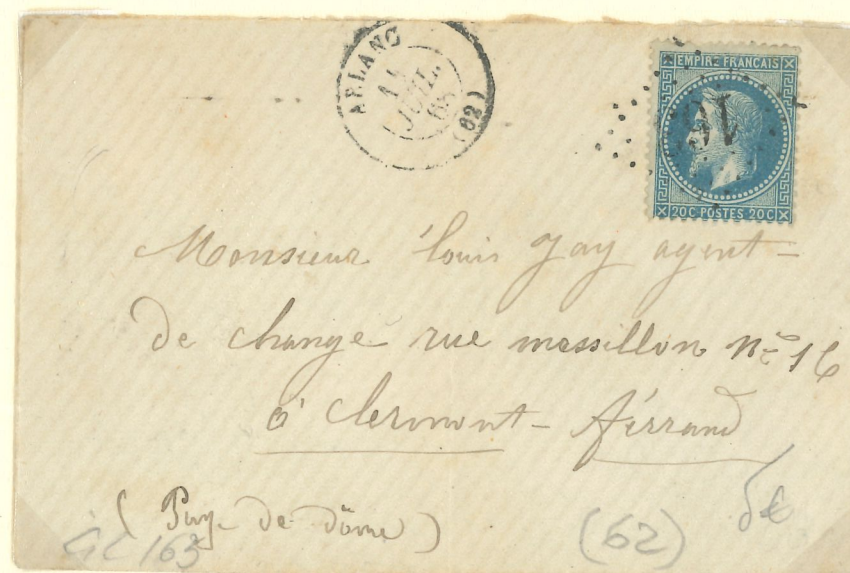 ARLANC
14
JUIL.
68
(62)
EMPIRE FRANCAIS
20C POSTES 20C
Monsieur Louis Jay agent-
de change rue massillon n° 16
à Clermont-férrand
(Puy-de-dôme)
GC 163
(62)